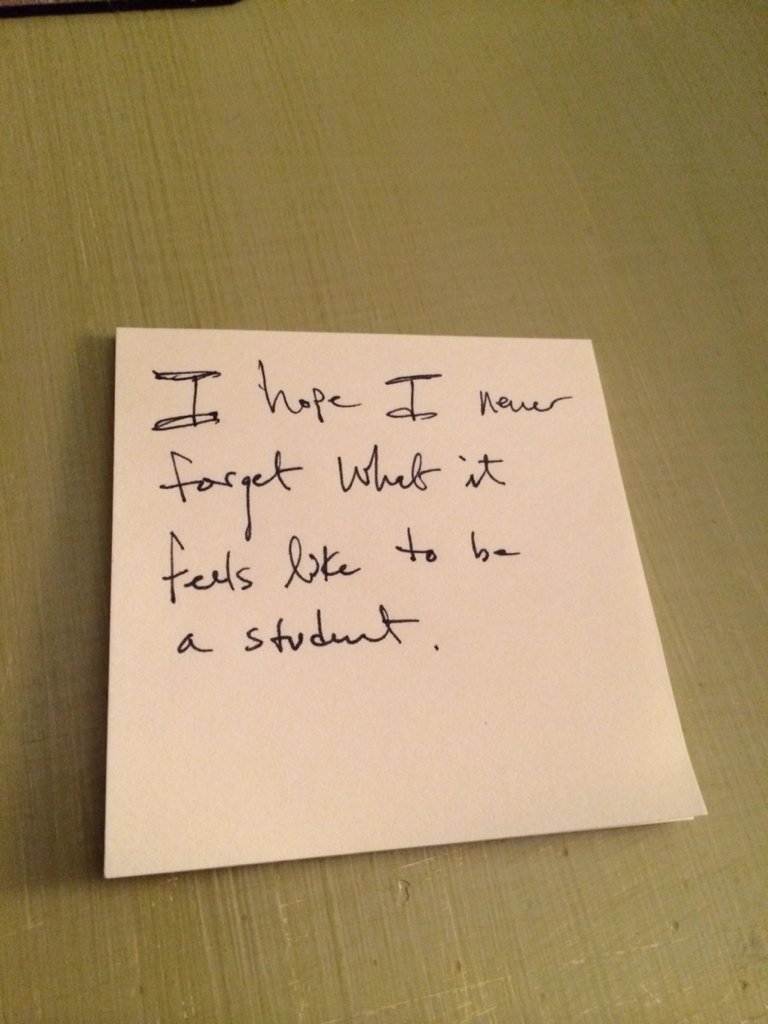 I hope I never
forget what it
feels like to be
a student.